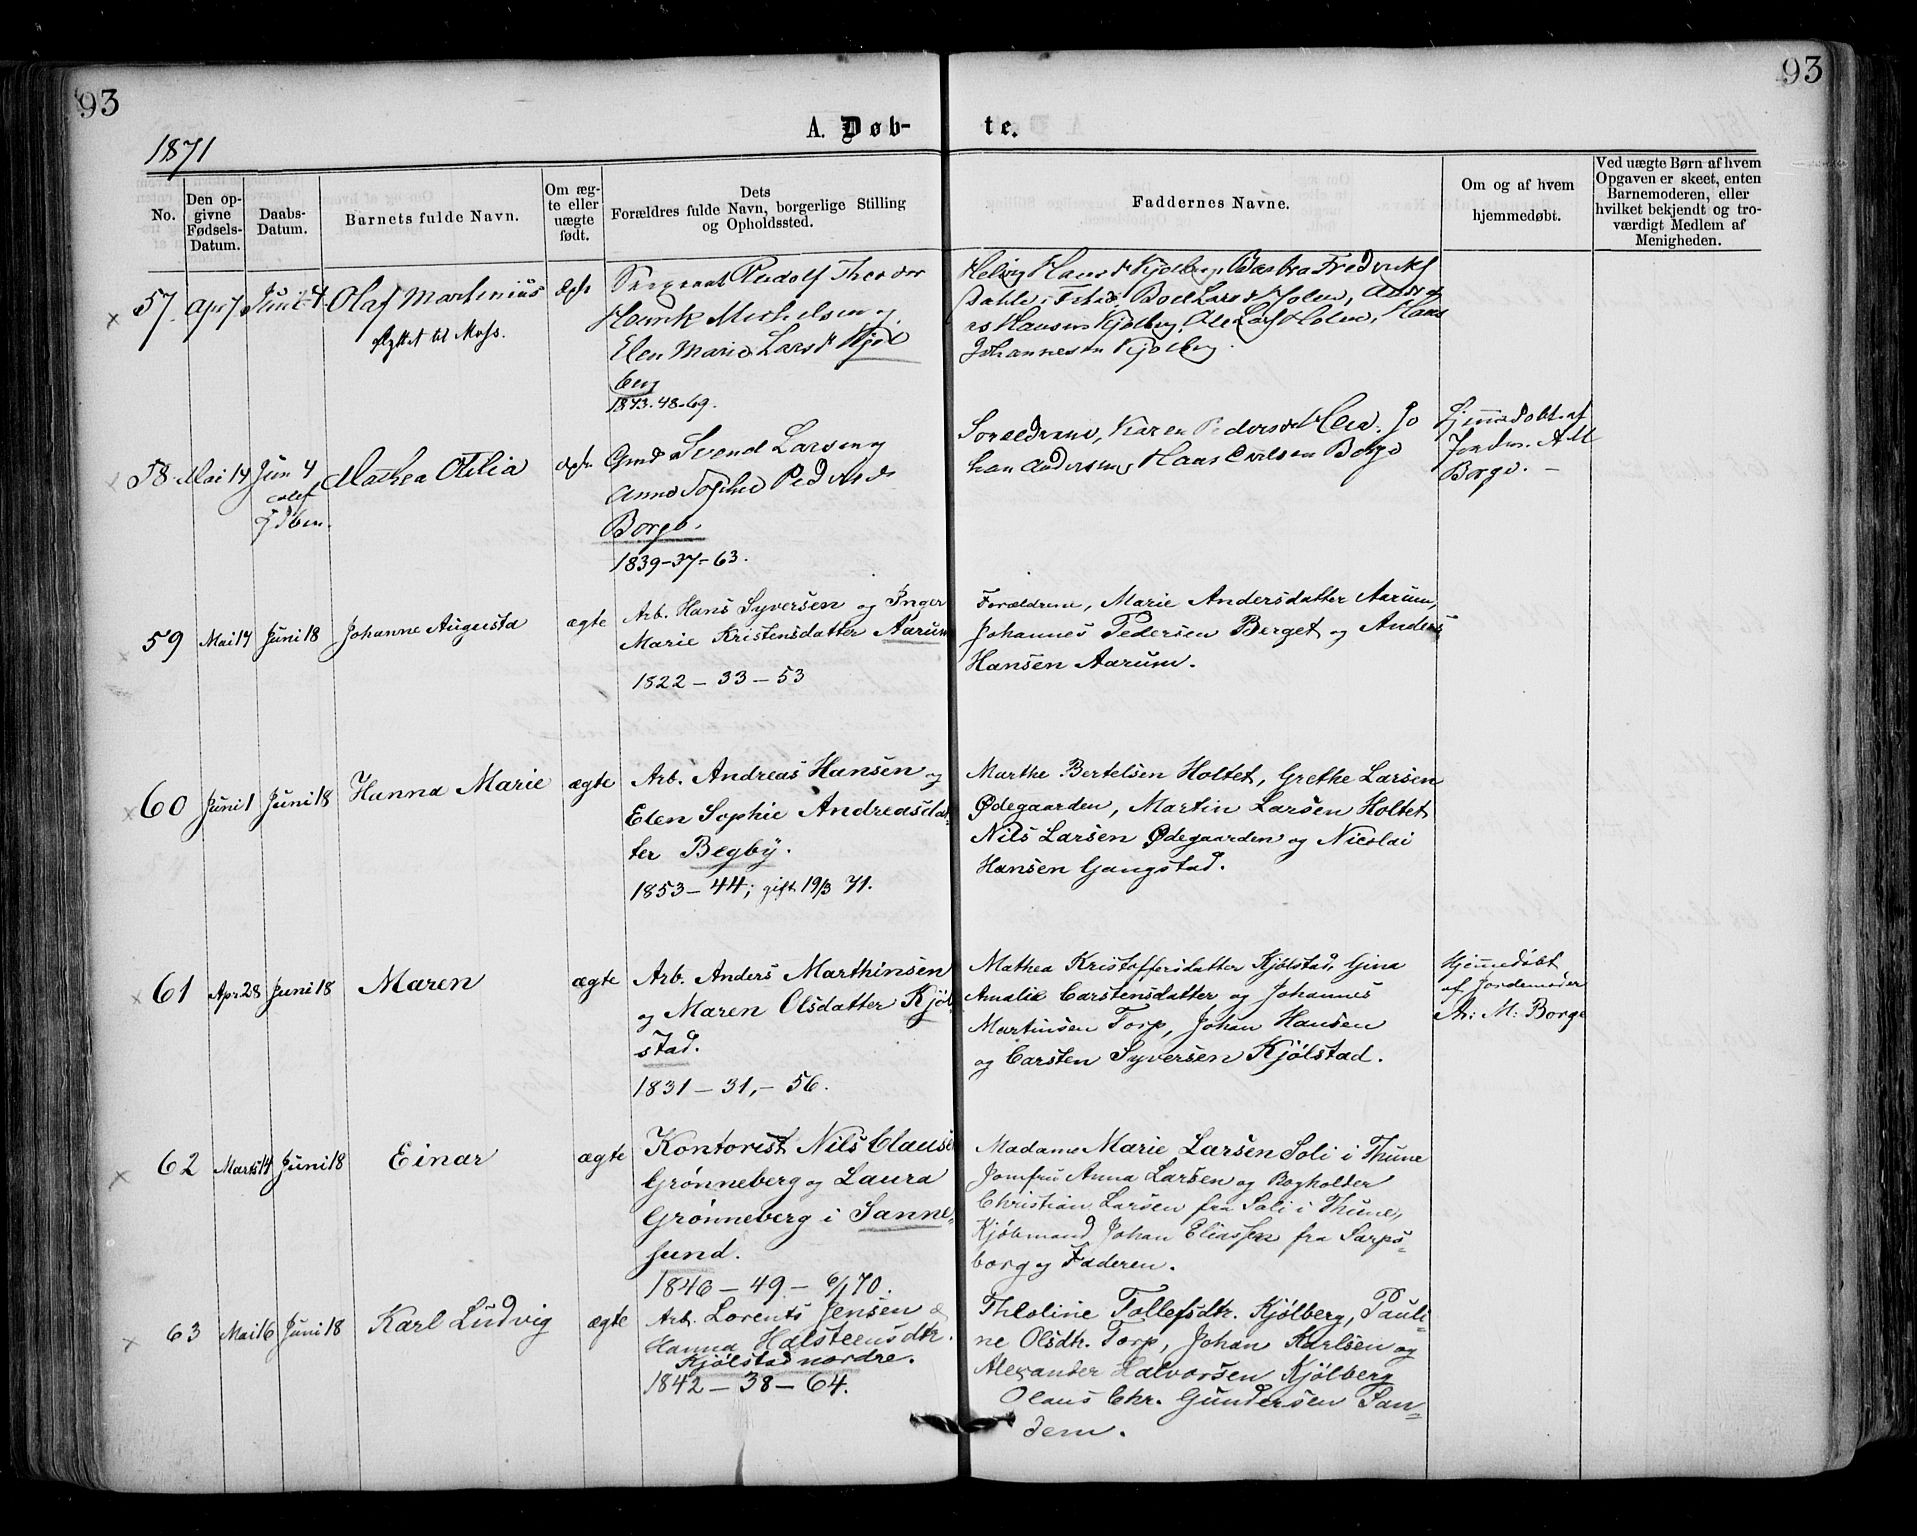 93
93
1871
A. Døb- te.
No.
Den op-
givne
Fødsels-
Datum.
Daabs-
Datum.
Barnets fulde Navn.
Om æg-
te eller
uægte
født.
Dets
Forældres fulde Navn, borgerlige Stilling
og Opholdssted.
Faddernes Navne.
Om og af hvem
hjemmedøbt.
Ved uægte Børn af hvem
Opgaven er skeet, enten
Barnemoderen, eller
hvilket bekjendt og tro-
værdigt Medlem af
Menigheden.
57. Apr 7 Juni 4 Olaf Martinius
flyttet til Moss.
Rudolf Theodor
Henrik Michelsen og
Elen Marie Larsd Kjøl
berg
1843. 48-69.
Helvig Hansd Kjølberg
Larsd Holen,
rs Hansen Kjølberg, Ole Larss Holen, Hans
Johannesen Kjølberg.
58. Mai 14 Jun 4 Mathea Otilia
Gmd Svend Larsen og
Anne Sophie Pedersd
Borge.
1839-37-63.
Foreldrene, Karen Pedersd Jo
han Andersen, Hans Borge
Hjemmedøbt af
Jordm. A M
Borge. –
59 Mai 14 Juni 18 Johanne Augusta ægte
Arb. Hans Syversen og Inger
Marie Kristensdatter Aarum
1822 – 33 – 53
Forældrene, Marie Andersdatter Aarum,
Johannes Pedersen Berget og Anders
Hansen Aarum.
60 Juni 1 Juni 18 Hanna Marie ægte
Arb. Andreas Hansen og
Elen Sophie Andreasdat-
ter Begby.
1853 – 44; gift 19/3 71.
Marthe Bertelsen Holtet, Grethe Larsen
Ødegaarden, Martin Larsen Holtet
Nils Larsen Ødegaarden og Nicolai
Hansen Gangstad.
61 Apr 28 Juni 18 Maren ægte
Arb. Anders Marthinsen
og Maren Olsdatter Kjøl-
stad.
1831 – 31, – 56.
Mathea Kristoffersdatter Kjølstad, Gina
Amalie Carstensdatter og Johannes
Martinsen Torp, Johan Hansen
og Carsten Syversen Kjølstad.
Hjemmedøbt
af Jordemoder
A: M: Borge
62 Marts 14 Juni 18 Einar ægte
Kontorist Nils Clausen
Grønneberg og Laura
Grønneberg i Sanne-
sund.
1846 – 49 – 6/1 70.
Madame Marie Larsen Soli i Thune
Jomfru Anna Larsen og Bogholder
Christian Larsen fra Soli i Thune,
Kjøbmand Johan Eliassen fra Sarps-
borg og Faderen.
63 Mai 16 Juni 18 Karl Ludvig ægte
Arb. Lorents Jensen &
Hanna Halsteensdtr.
Kjølstad nordre.
1842 – 38 – 64.
Theoline Tollefsdtr. Kjølberg, Pauli-
ne Olsdtr. Torp, Johan Karlsen og
Alexander Halvorsen Kjølberg
Olaus Chr. Gundersen San-
dem.